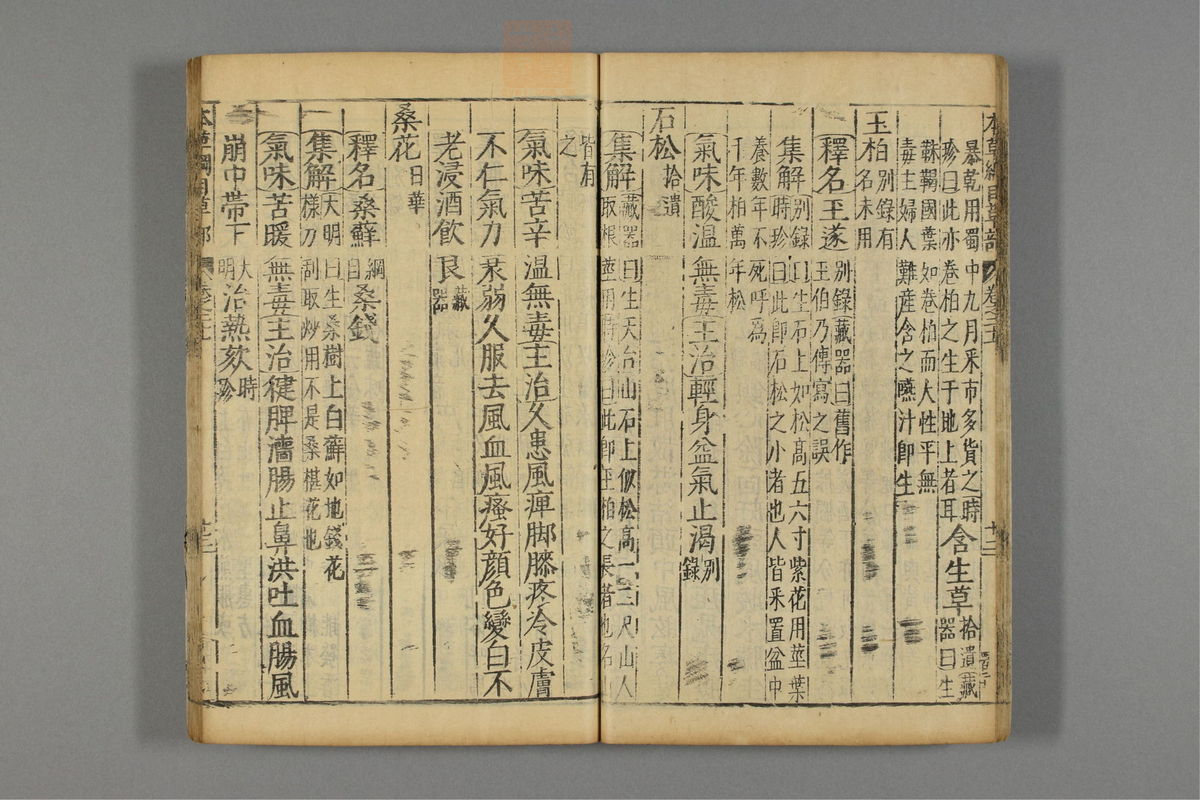 本草綱目草部 卷之五 十二
暴乾用蜀中九月采市多貨之時
珍曰此亦卷柏之生于地上者耳
含生草
拾遺藏
器曰生
靺鞨國葉如卷柏而大性平無
毒主婦人難産含之嚥汁卽生
玉柏
別錄有
名未用
釋名玉遂
別錄藏器曰舊作
玉伯乃傳寫之誤
集解
別錄曰生石上如松高五六寸紫花用莖葉
時珍曰此卽石松之小者也人皆采置盆中
養數年不死呼爲
千年柏萬年松
氣味酸溫無毒主治輕身益氣止渴
別
錄
石松
拾遺
集解
藏器曰生天台山石上似松高一二尺山人
取根莖用時珍曰此卽玉柏之長者也名山
皆有
之
氣味苦辛溫無毒主治久患風痺脚膝疼冷皮膚
不仁氣力衰弱久服去風血風瘙好顔色變白不
老浸酒飲良
藏
器
桑花
日華
釋名桑蘚
綱
目
桑錢
集解
大明曰生桑樹上白蘚如地錢花
樣刀刮取炒用不是桑椹花也
氣味苦暖無毒主治健脾濇腸止鼻洪吐血腸風
崩中帶下
大
明
治熱欬
時
珍
本草綱目草部 卷之